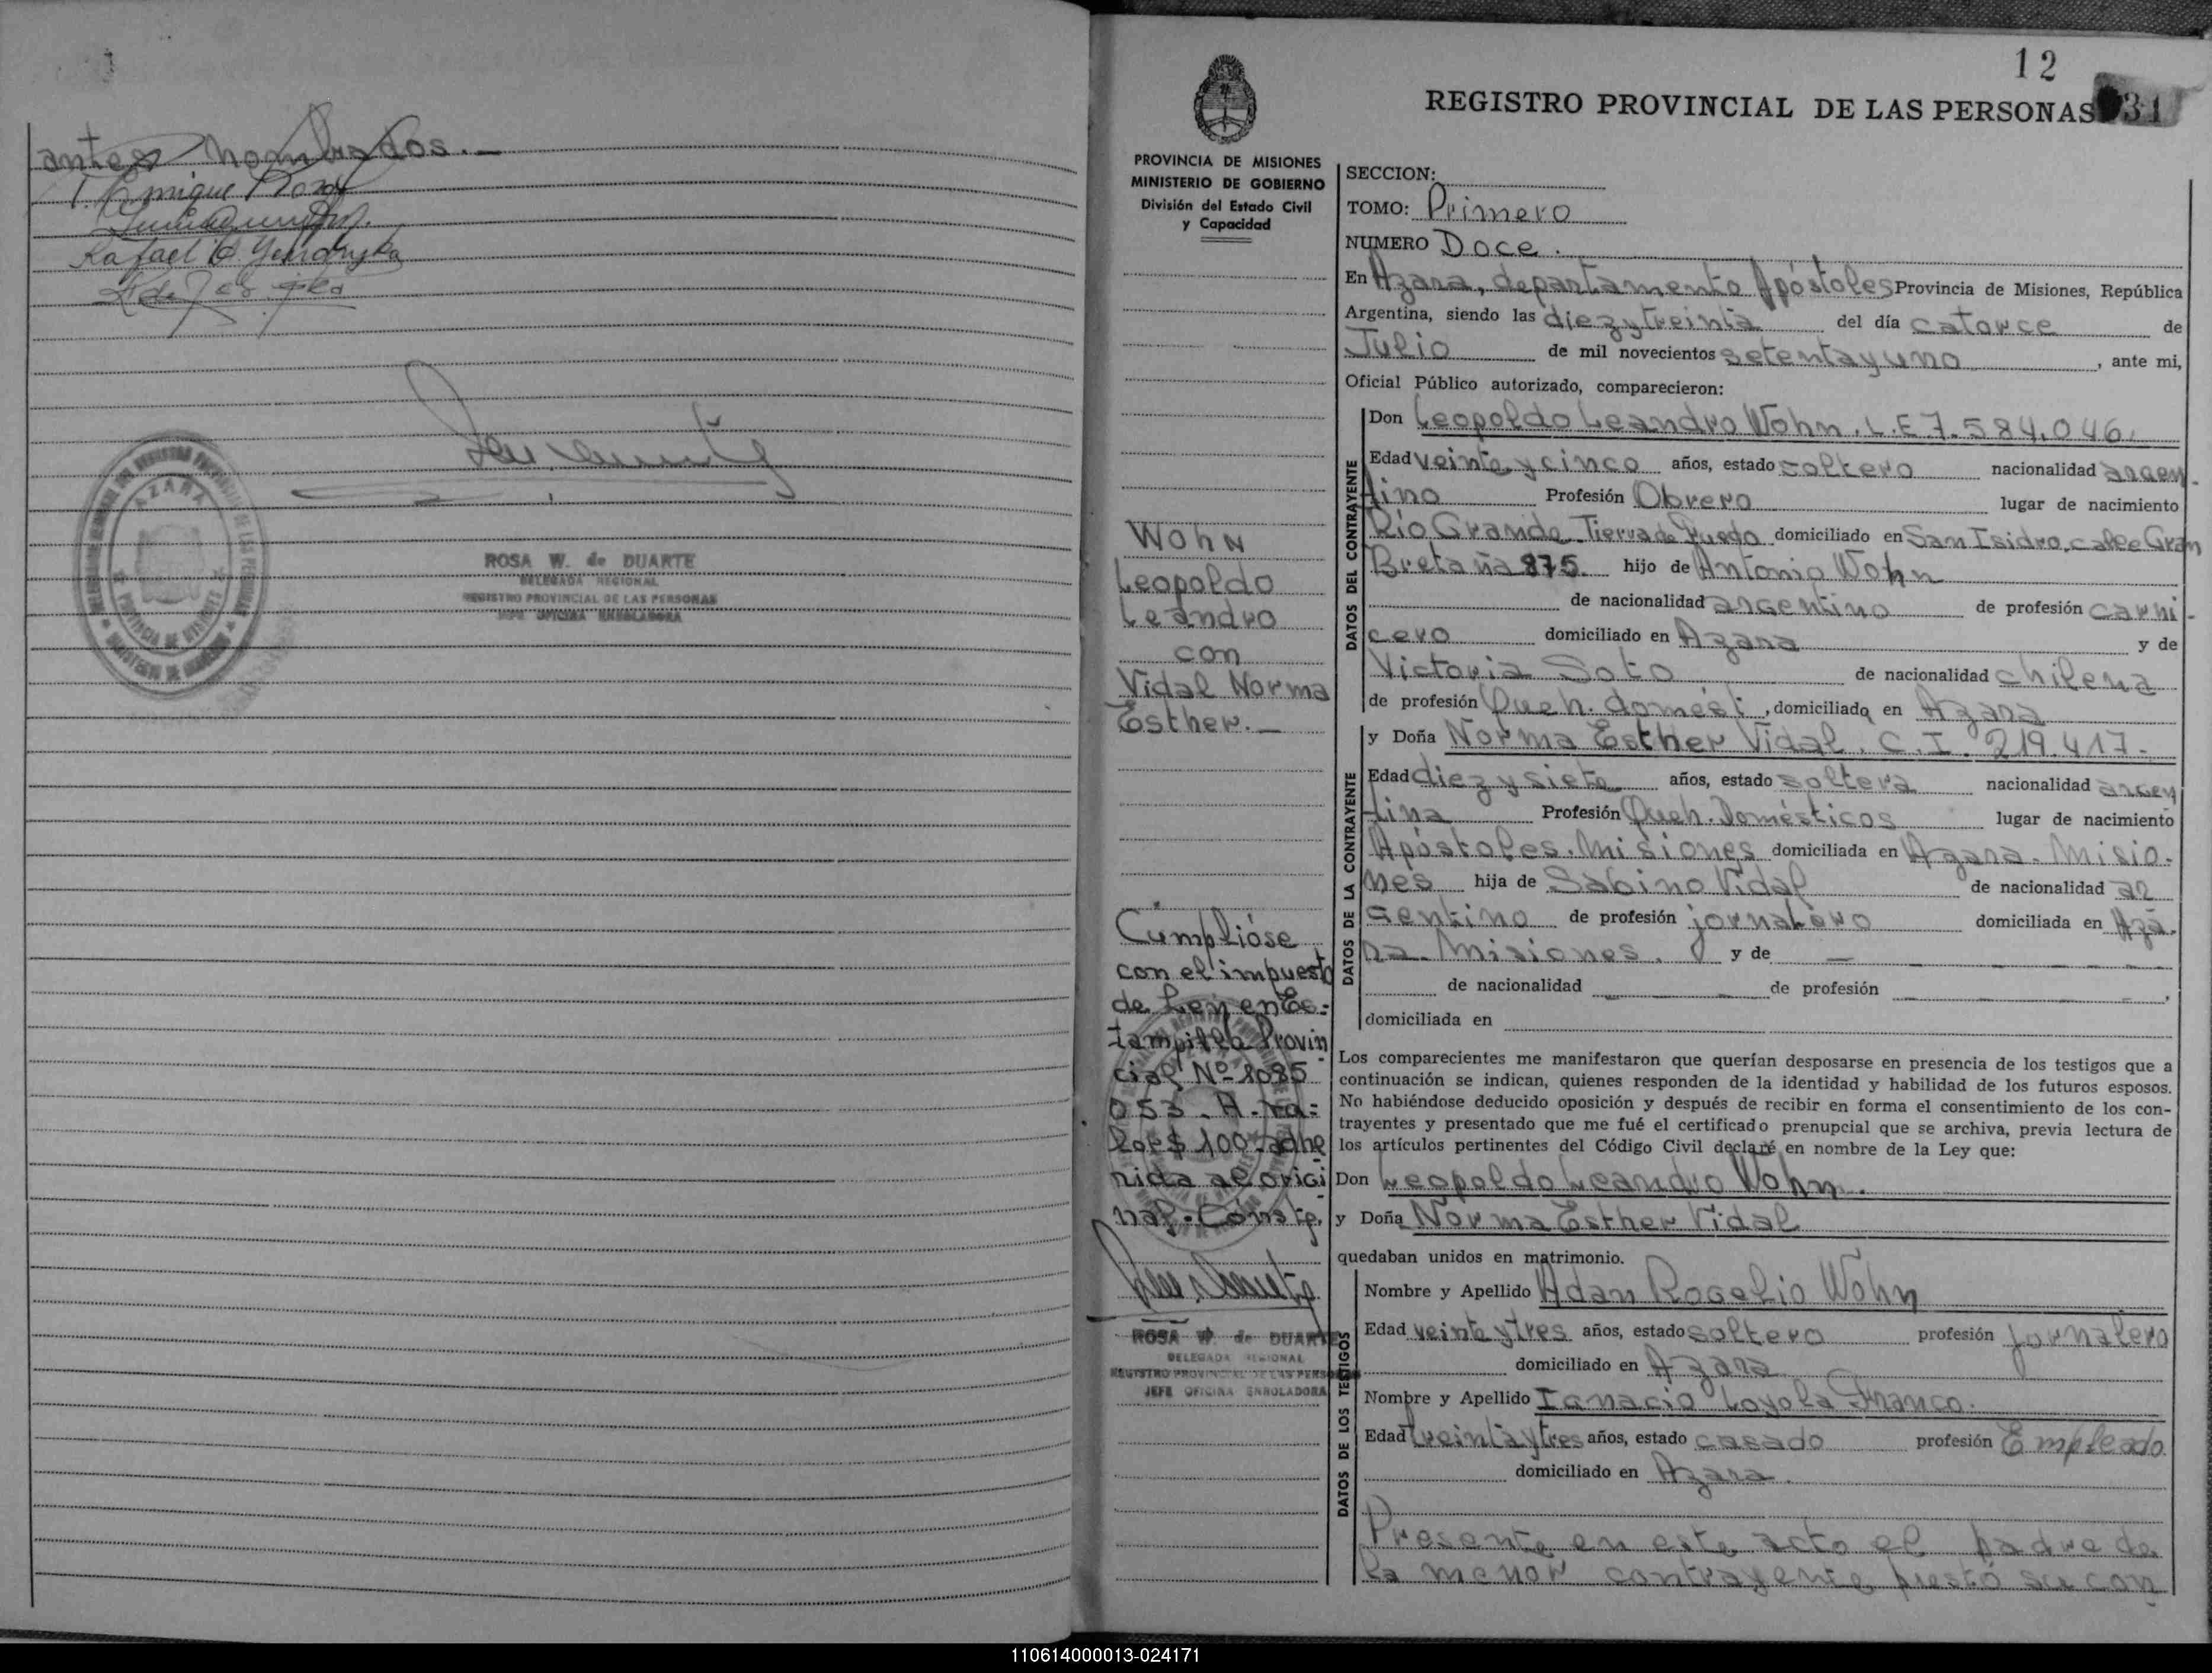 antes nombrados._
Enrique
Rafael
AZARA
PROVINCIA DE MISIONES
ROSA W. de DUARTE
DELEGADA REGIONAL
REGISTRO PROVINCIAL DE LAS PERSONAS
JEFE OFICINA ENROLADORA
12
REGISTRO PROVINCIAL DE LAS PERSONAS 31
PROVINCIA DE MISIONES
MINISTERIO DE GOBIERNO
División del Estado Civil
y Capacidad
Wohn
Leopoldo
Leandro
con
Vidal Norma
Esther._
Cúmplióse
con el impuesto
de Ley en Es=
tampilla Provin
cial Nº 1085
053. A. va=
lor $ 100 adhe
rida al origi
nal. Conste.
ROSA W. de DUARTE
DELEGADA REGIONAL
REGISTRO PROVINCIAL DE LAS PERSONAS
JEFE OFICINA ENROLADORA
SECCION:
TOMO: Primero
NUMERO Doce.
En Azara, departamento Apóstoles Provincia de Misiones, República
Argentina, siendo las diez y treinta del día catorce de
Julio de mil novecientos setenta y uno, ante mi,
Oficial Público autorizado, comparecieron:
DATOS DEL CONTRAYENTE
Don Leopoldo Leandro Wohn. L.E 7.584.046.
Edad veinte y cinco años, estado soltero nacionalidad argen-
tino Profesión Obrero lugar de nacimiento
Río Grande Tierra de Fuego domiciliado en San Isidro, calle Gran
Bretaña 875 hijo de Antonio Wohn
de nacionalidad argentino de profesión carni-
cero domiciliado en Azara y de
Victoria Soto de nacionalidad chilena
de profesión Queh. domést., domiciliada en Azara
DATOS DE LA CONTRAYENTE
y Doña Norma Esther Vidal. C.I. 219.417.
Edad diez y siete años, estado soltera nacionalidad argen
tina Profesión Queh. Domésticos lugar de nacimiento
Apóstoles. Misiones domiciliada en Azara. Misio-
nes hija de Sabino Vidal de nacionalidad ar
gentino de profesión jornalero domiciliada en Aza-
ra. Misiones. y de —
de nacionalidad — de profesión —,
domiciliada en
Los comparecientes me manifestaron que querían desposarse en presencia de los testigos que a
continuación se indican, quienes responden de la identidad y habilidad de los futuros esposos.
No habiéndose deducido oposición y después de recibir en forma el consentimiento de los con-
trayentes y presentado que me fué el certificado prenupcial que se archiva, previa lectura de
los artículos pertinentes del Código Civil declaré en nombre de la Ley que:
Don Leopoldo Leandro Wohn.
y Doña Norma Esther Vidal
quedaban unidos en matrimonio.
DATOS DE LOS TESTIGOS
Nombre y Apellido Adan Rogelio Wohn
Edad veinte y tres años, estado soltero profesión jornalero
domiciliado en Azara
Nombre y Apellido Ignacio Loyola Franco.
Edad treinta y tres años, estado casado profesión Empleado
domiciliado en Azara.
Presente en este acto el padre de
la menor contrayente prestó su con
110614000013-024171